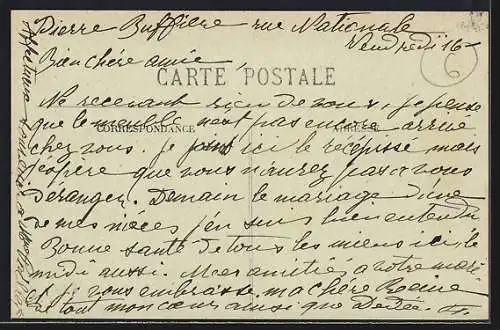 Pierre Buffière rue Nationale
Vendredi 16
Bien chère amie
CARTE POSTALE
Ne recevant rien de vous, je pense
que le meuble n'est pas encore arrivé
CORRESPONDANCE
ADRESSE
chez vous. Je joins ici le récépissé mais
j'espère que vous n'aurez pas à vous
déranger. Demain le mariage d'une
de mes nièces j'en suis bien entendu
Bonne santé de tous les miens ici, le
midi aussi. Mes amitiés a votre mari
Je vous embrasse ma chère
de tout mon cœur ainsi que Dédée.
6